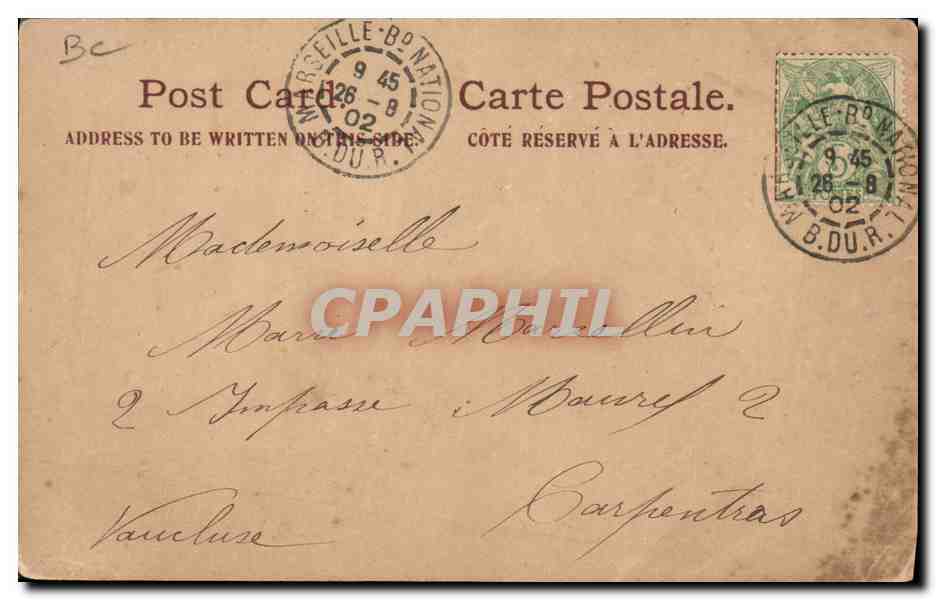 BC
MARSEILLE-Bᴰ NATIONAL
9 45
26 - 8
02
B.DU.R.
MARSEILLE-Bᴰ NATIONAL
9 45
26 - 8
02
B.DU.R.
5
Post Card. Carte Postale.
ADDRESS TO BE WRITTEN ON THIS SIDE. CÔTÉ RÉSERVÉ À L'ADRESSE.
Mademoiselle
Marie Marcellin
CPAPHIL
2 Impasse Maurel 2
Carpentras
Vaucluse